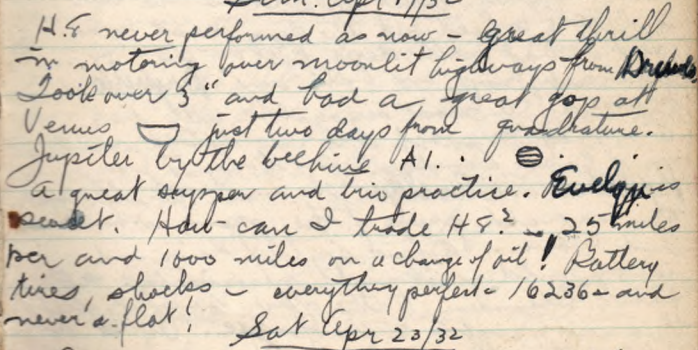 Sun. Apr 17/32
H.8 never performed as now – great thrill
in motoring over moonlit highways from
Took over 3" and had a great gop at
Venus just two days from quadrature.
Jupiter by the beehive A1.
a great supper and trio practice. Evelyn is
sweet. How can I trade H8? – 25 miles
per and 1000 miles on a change of oil! Battery
tires, shocks – everything perfect – 16236 – and
never a flat!
Sat Apr 23/32